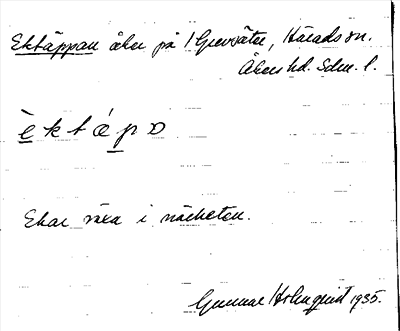 Ektäppan åker på 1 Grevsäter, Härads sn.
Åkers hd. Södm. l.
è k t á p ɒ
Ekar växa i närheten.
Gunnar Holmquist 1935.